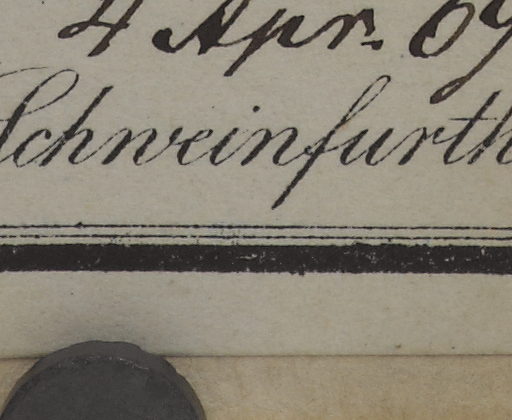 4 Apr. 69
Schweinfurth